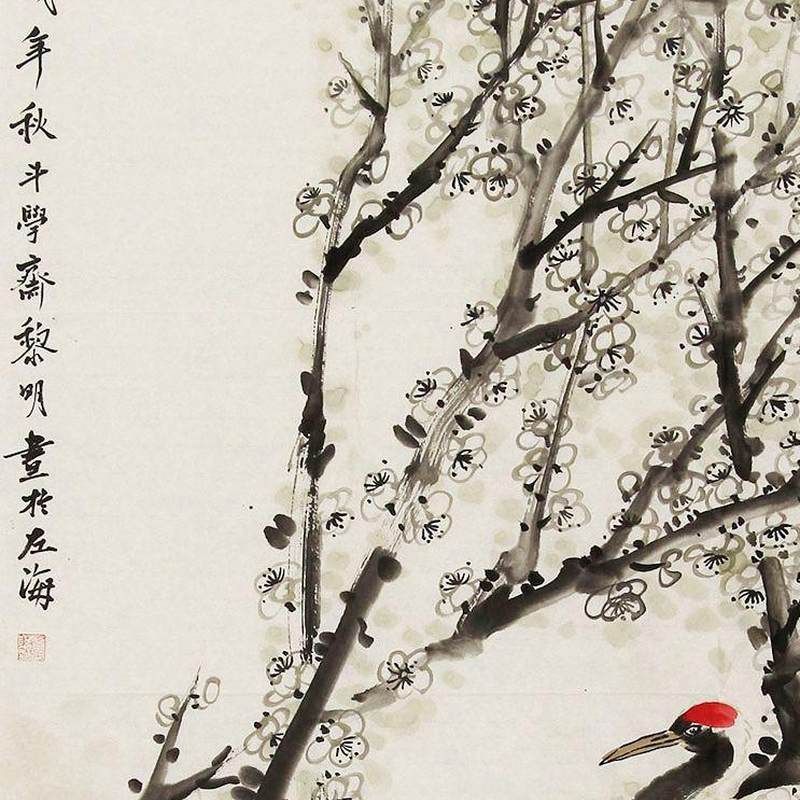 年秋斗學齋黎明畫於左海